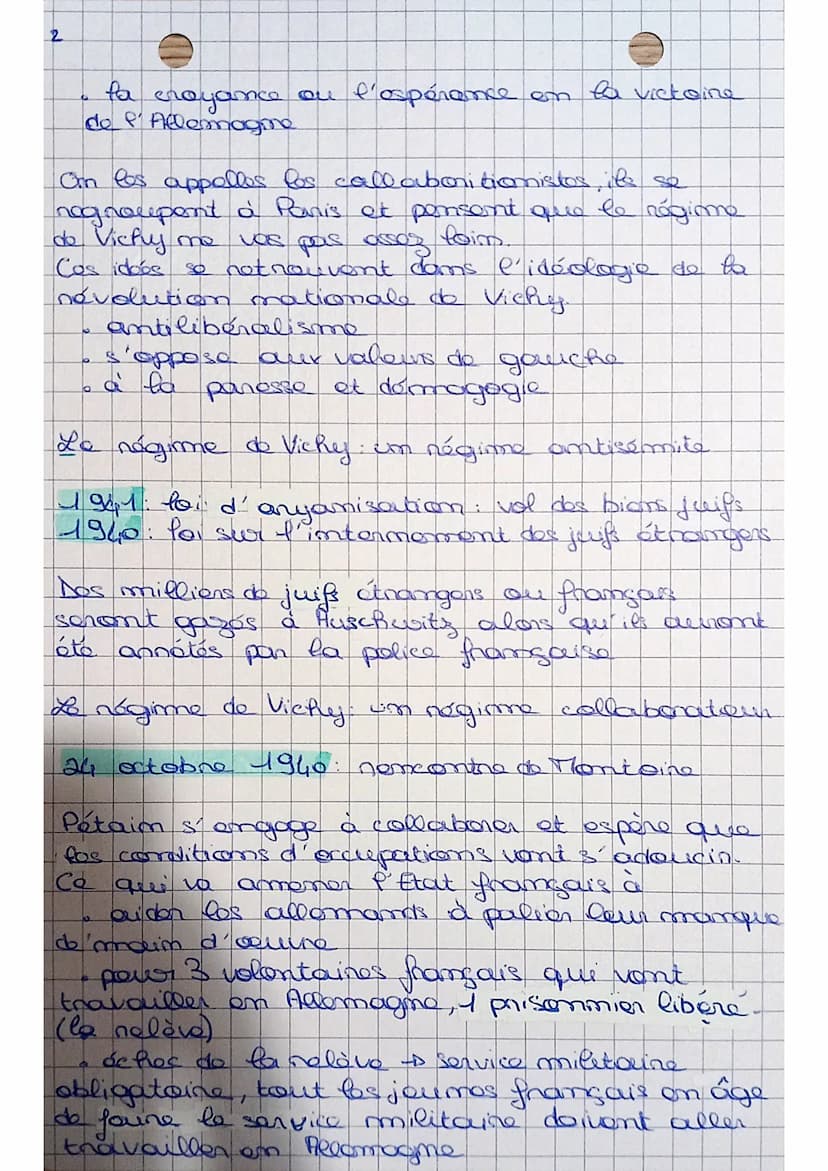 2
. la croyance ou l'espérance en la victoire
de l'Allemagne
On les appelles les collabonitionistes, ils se
regroupent à Paris et pensent que le régime
de Vichy ne vas pas assez loin.
Ces idées se retrouvent dans l'idéologie de la
révolution nationale de Vichy.
. antilibéralisme
. s'oppose aux valeurs de gauche
. à la paresse et démagogie
Le régime de Vichy : un régime antisémite
1941 : loi d'aryanisation : vol des biens juifs
1940 : loi sur l'internement des juifs étrangers
Des milliers de juifs étrangers ou français
seront gazés à Auschwitz alors qu'ils auront
été arrêtés par la police française
Le régime de Vichy : un régime collaborateur
24 octobre 1940 : rencontre de Montoire
Pétain s'engage à collaborer et espère que
les conditions d'occupations vont s'adoucir.
Ce qui va amener l'Etat français à
. aider les allemands à palier leur manque
de main d'oeuvre
. pour 3 volontaires français qui vont
travailler en Allemagne, 1 prisonnier libéré
(la relève)
. échec de la relève → service militaire
obligatoire, tout les jeunes français en âge
de faire le service militaire doivent aller
travailler en Allemagne